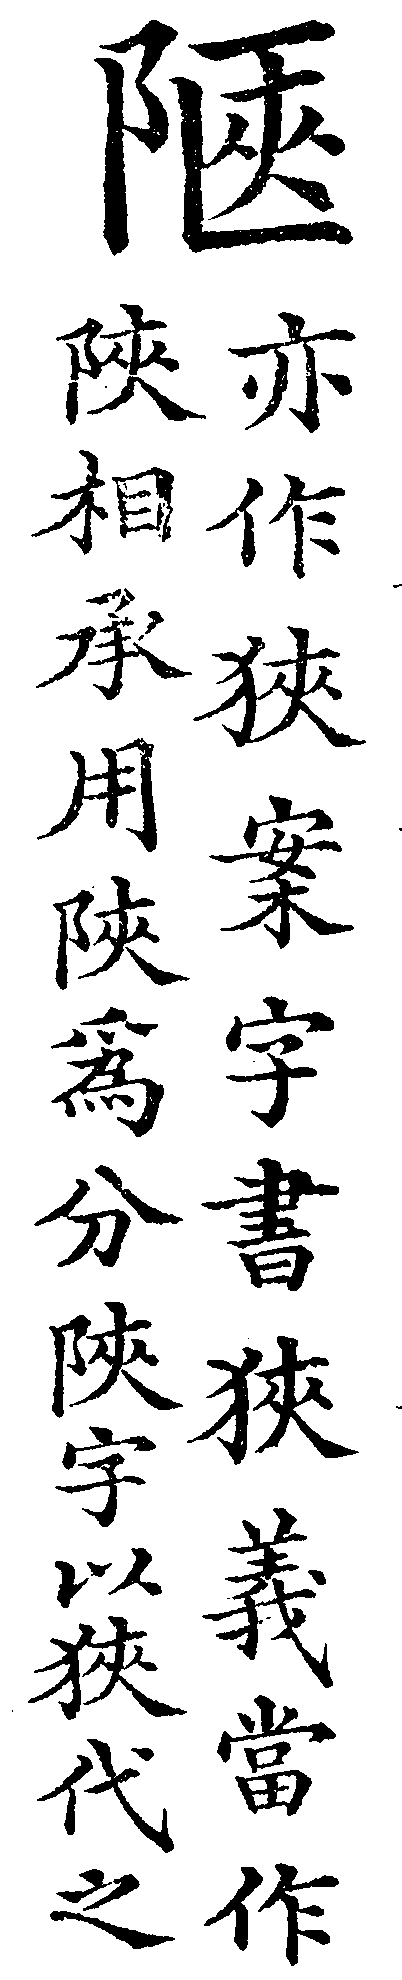 ⿰阝匧
亦作狹案字書狹義當作
陜相承用陜爲分陜字以狹代之